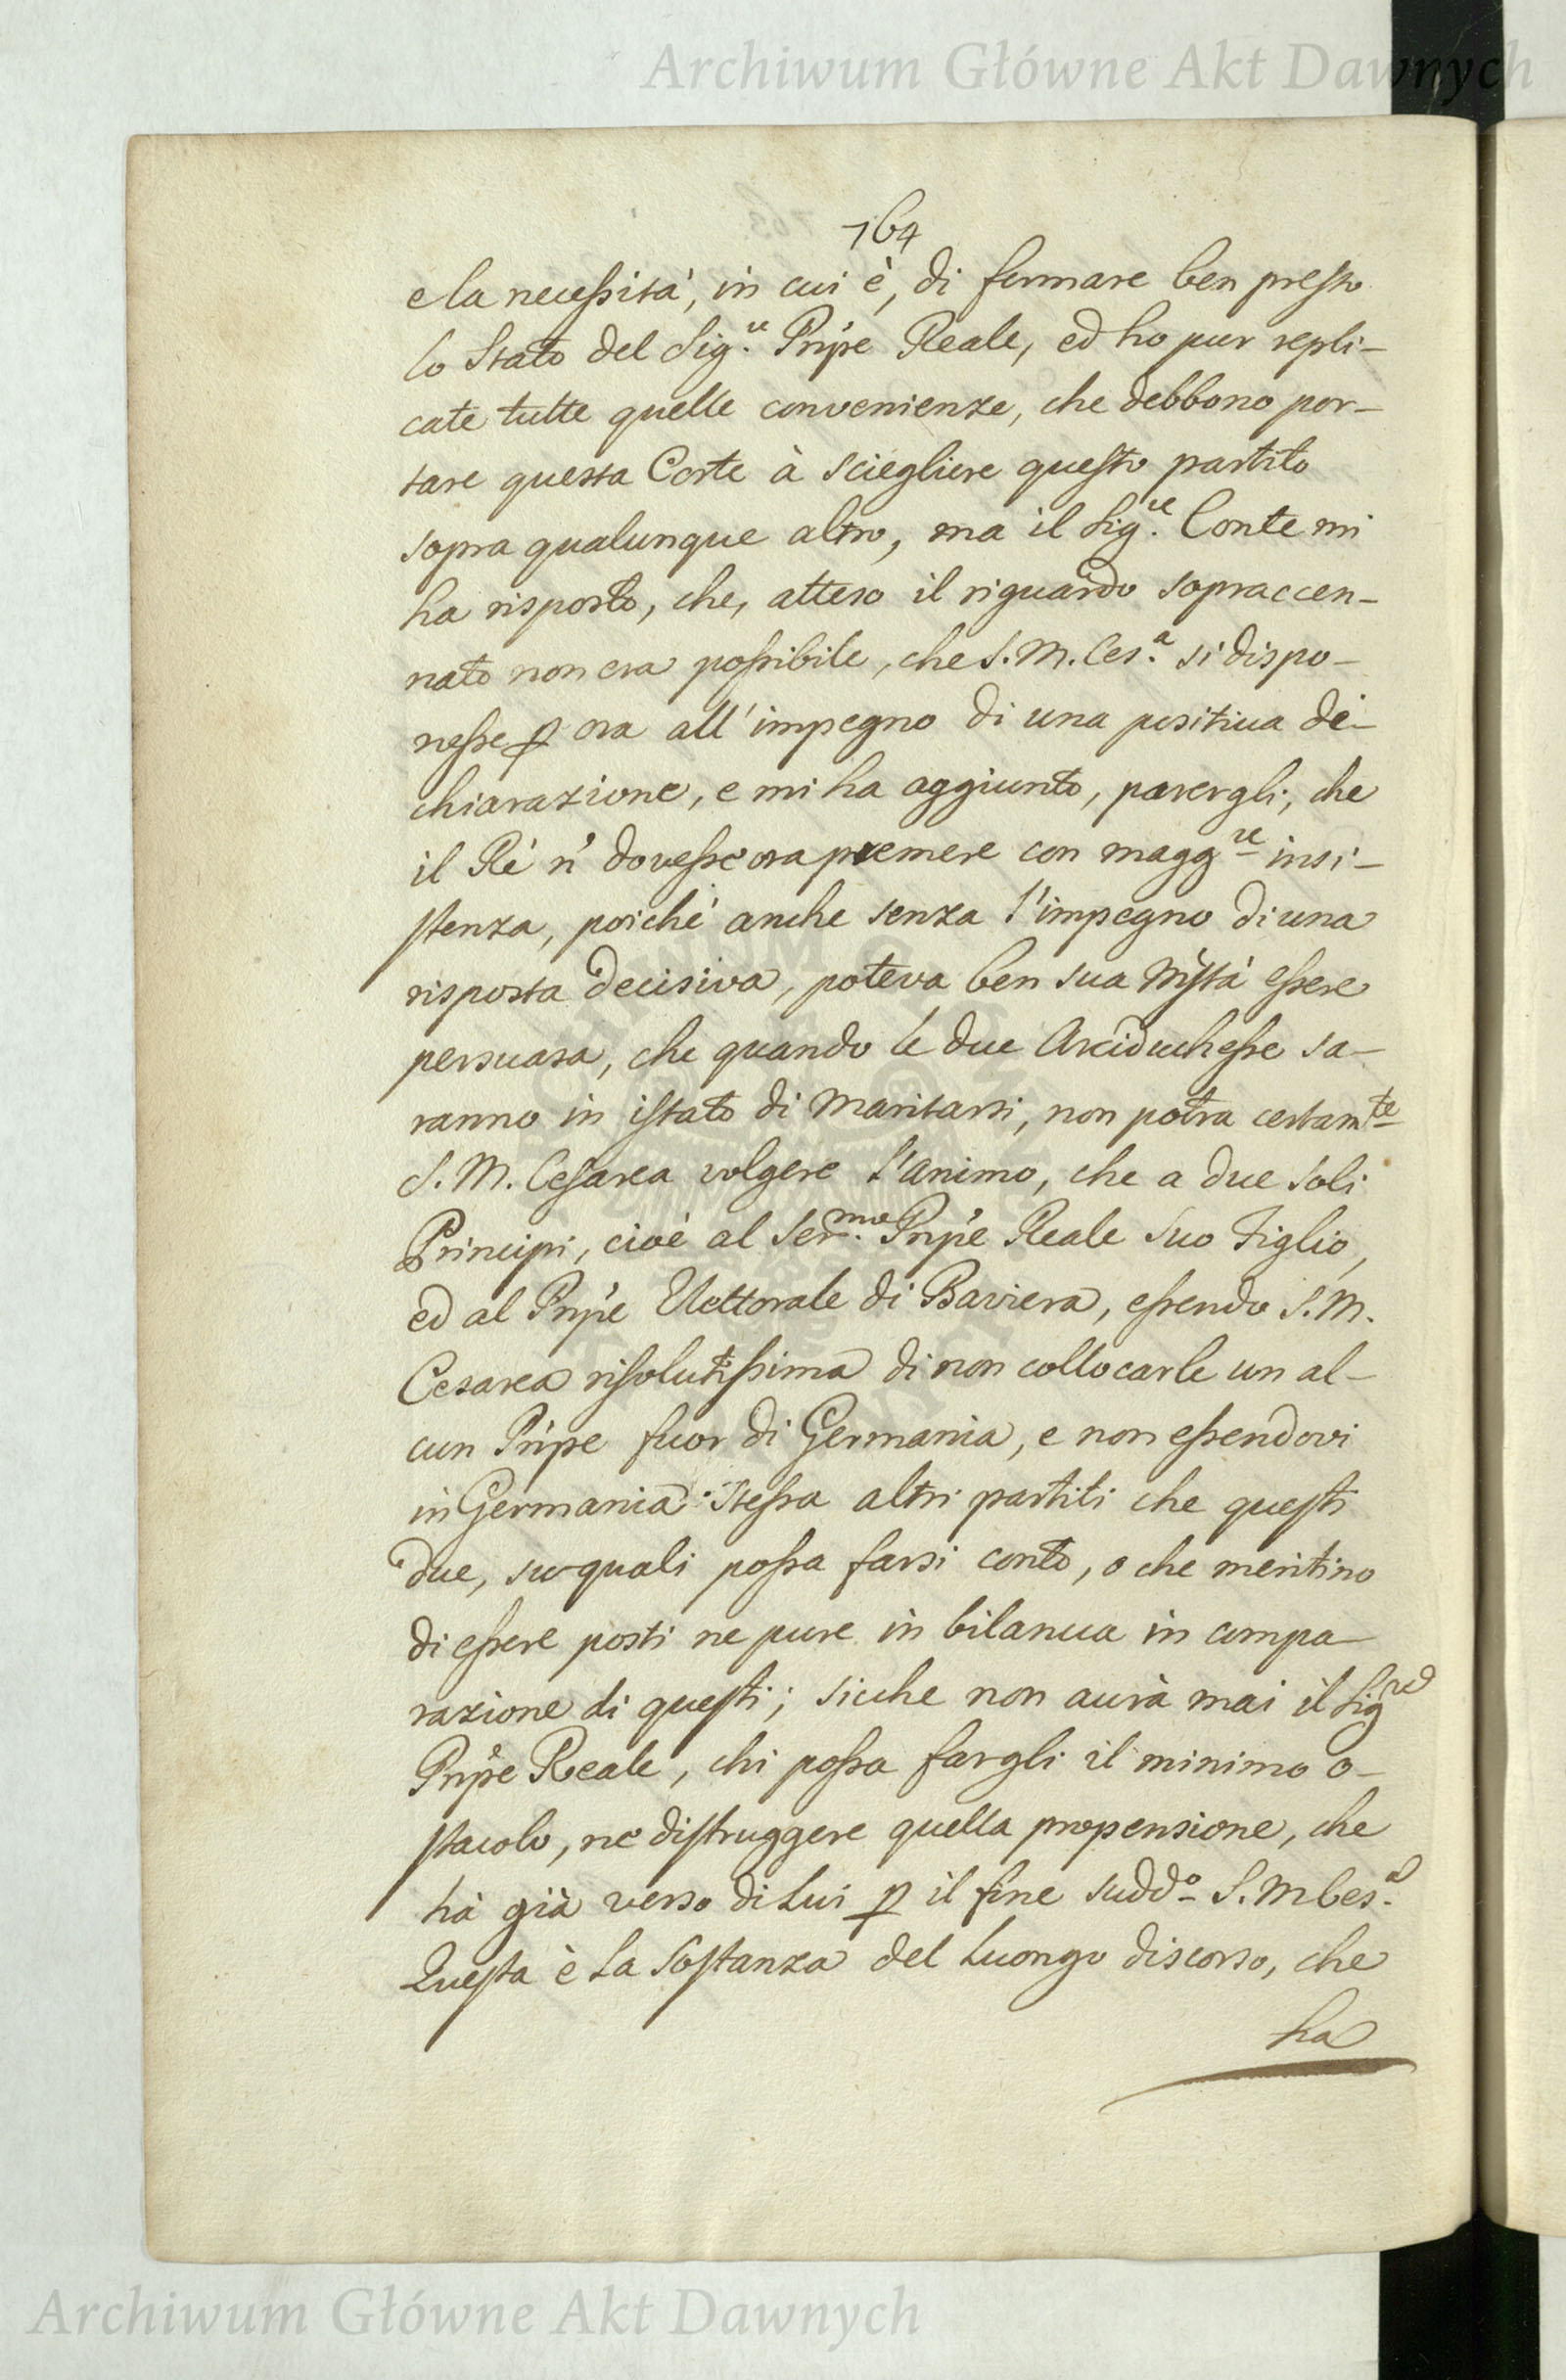 Archiwum Główne Akt Dawnych
764
e la necessità, in cui è, di fermare ben presto
lo Stato del Sig.re Pnpe Reale, ed ho pur repli-
cate tutte quelle convenienze, che debbono por-
tare questa Corte à sciegliere questo partito
sopra qualunque altro, ma il Sig.re Conte mi
ha risposto, che, atteso il riguardo sopraccen-
nato non era possibile, che S.M. Ces.a si dispo-
nesse p ora all'impegno di una positiua di-
chiarazione, e mi ha aggiunto, parergli, che
il Rè ñ dovesse ora premere con magg.re insi-
stenza, poiché anche senza l'impegno di una
risposta decisiva, poteva ben sua Mstà essere
persuasa, che quando le due Arciduchesse sa-
ranno in istato di maritarsi, non potra certam.te
S.M. Cesarea volgere l'animo, che a due soli
Principi, cioè al Ser.mo Pnpe Reale suo Figlio,
ed al Pnpe Elettorale di Baviera, essendo S.M.
Cesarea risolutissima di non collocarle un al-
cun Pnpe fuor di Germania, e non essendovi
in Germania stessa altri partiti che questi
due, su quali possa farsi conto, o che meritino
di essere posti ne pure in bilancia in compa-
razione di questi; sicche non aurà mai il Sig.re
Pnpe Reale, chi possa fargli il minimo o-
stacolo, ne distruggere quella propensione, che
hà già verso di Lui p il fine sudd.o S.M Ces.a
Questa è La Sostanza del Luongo discorso, che
ha
Archiwum Główne Akt Dawnych